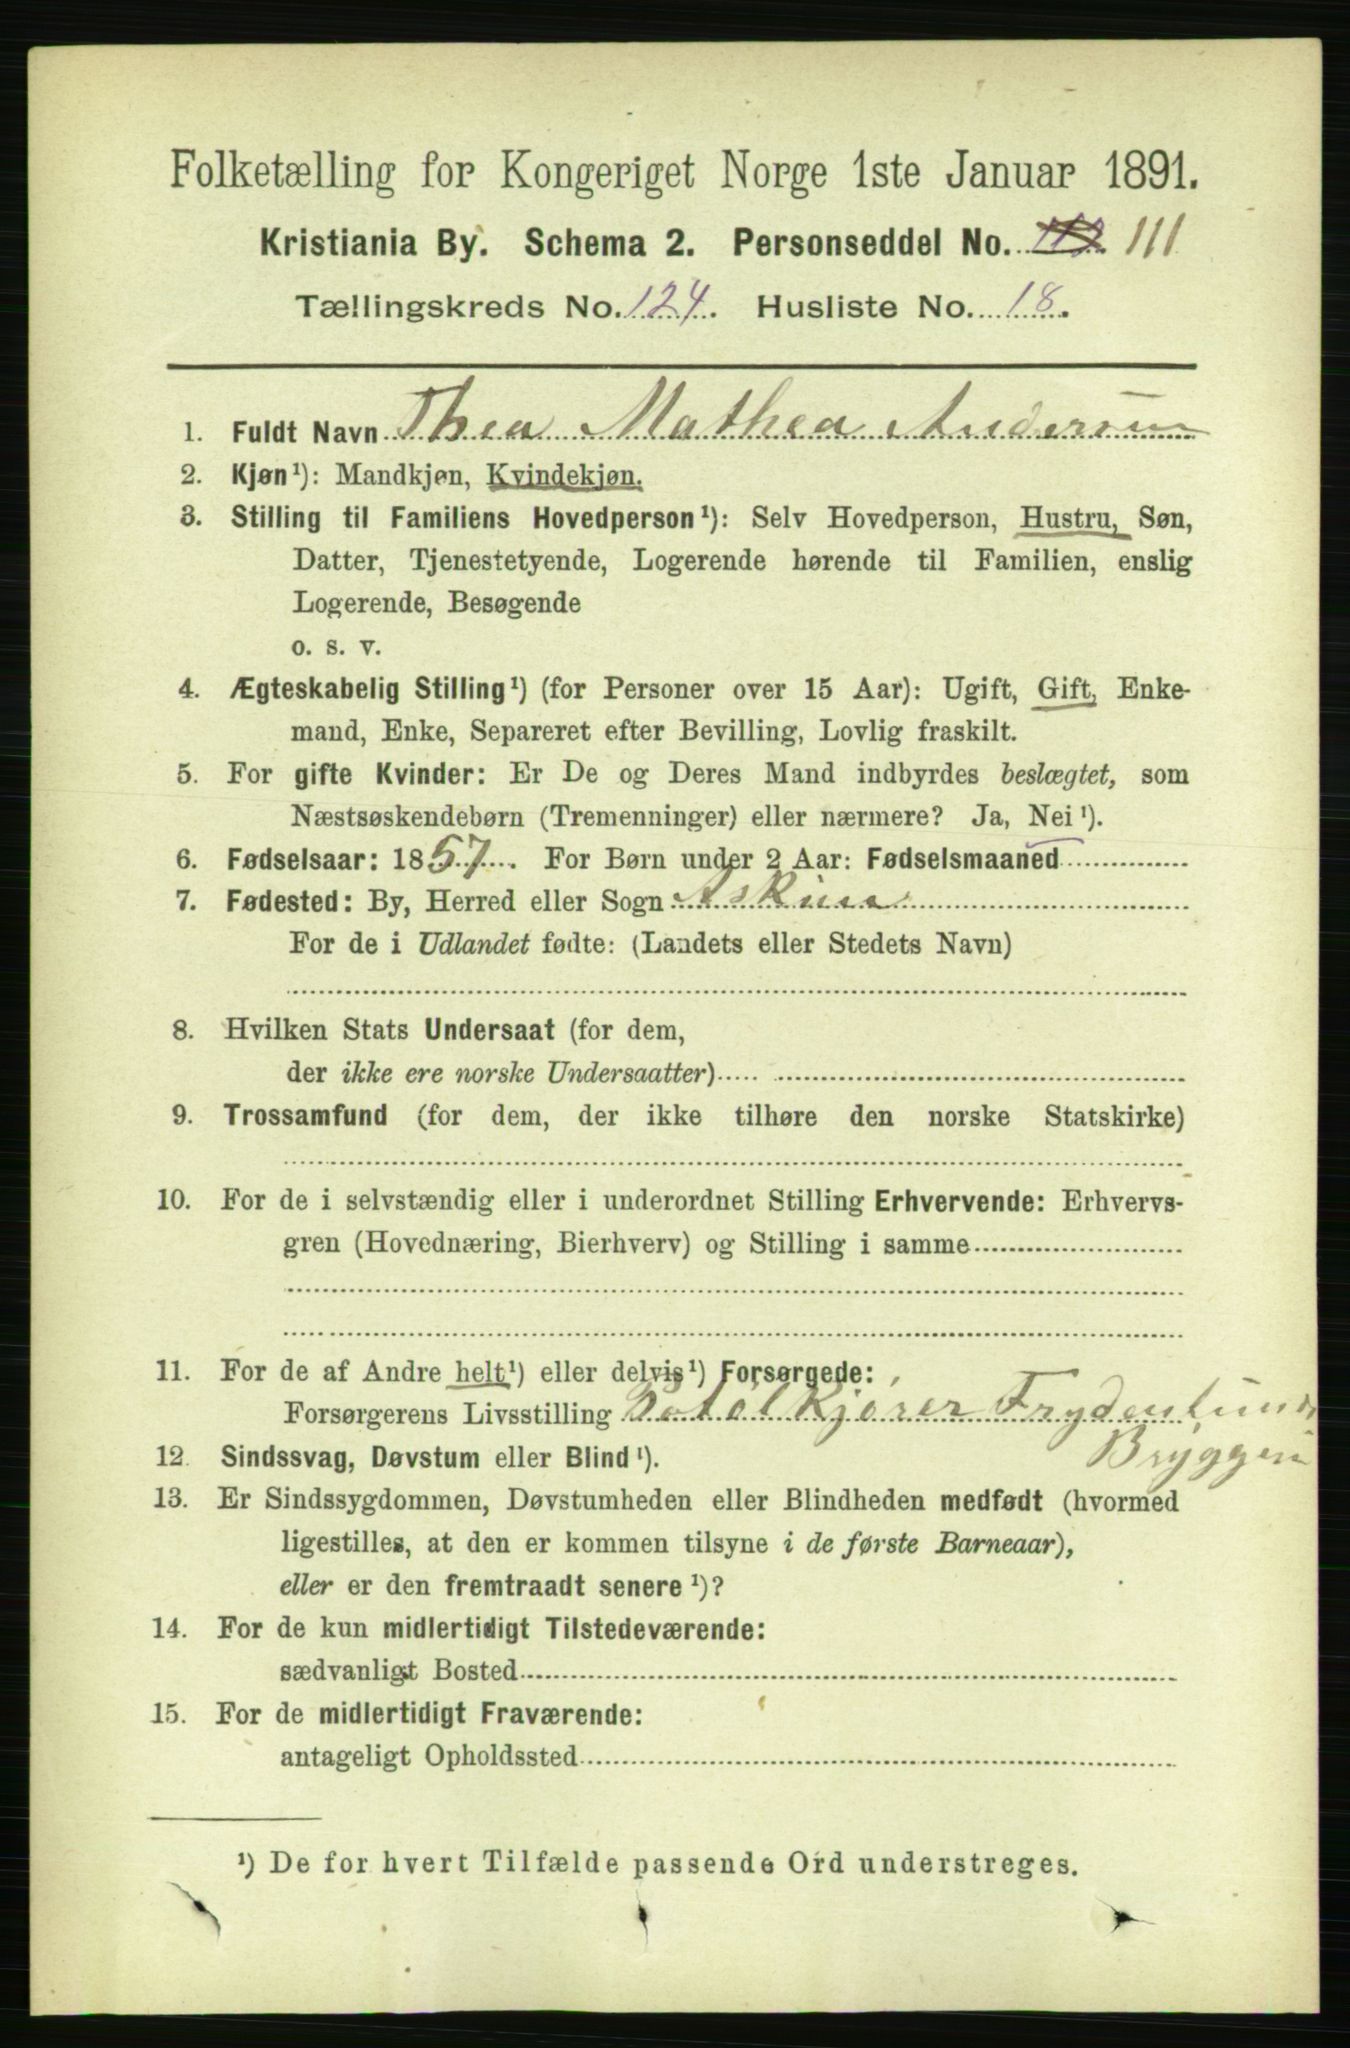 Folketælling for Kongeriget Norge 1ste Januar 1891.
Kristiania By. Schema 2. Personseddel No. 111
Tællingskreds No. 124. Husliste No. 18.
1. Fuldt Navn Thea Mathea Andersen
2. Kjøn¹): Mandkjøn, Kvindekjøn.
3. Stilling til Familiens Hovedperson¹): Selv Hovedperson, Hustru, Søn,
Datter, Tjenestetyende, Logerende hørende til Familien, enslig
Logerende, Besøgende
o. s. v.
4. Ægteskabelig Stilling¹) (for Personer over 15 Aar): Ugift, Gift, Enke-
mand, Enke, Separeret efter Bevilling, Lovlig fraskilt.
5. For gifte Kvinder: Er De og Deres Mand indbyrdes beslægtet, som
Næstsøskendebørn (Tremenninger) eller nærmere? Ja, Nei¹).
6. Fødselsaar: 1857. For Børn under 2 Aar: Fødselsmaaned
7. Fødested: By, Herred eller Sogn Askim
For de i Udlandet fødte: (Landets eller Stedets Navn)
8. Hvilken Stats Undersaat (for dem,
der ikke ere norske Undersaatter)
9. Trossamfund (for dem, der ikke tilhøre den norske Statskirke)
10. For de i selvstændig eller i underordnet Stilling Erhvervende: Erhvervs-
gren (Hovednæring, Bierhverv) og Stilling i samme
11. For de af Andre helt¹) eller delvis¹) Forsørgede:
Forsørgerens Livsstilling kjører Frydenlunds
Bryggeri
12. Sindssvag, Døvstum eller Blind¹).
13. Er Sindssygdommen, Døvstumheden eller Blindheden medfødt (hvormed
ligestilles, at den er kommen tilsyne i de første Barneaar),
eller er den fremtraadt senere¹)?
14. For de kun midlertidigt Tilstedeværende:
sædvanligt Bosted
15. For de midlertidigt Fraværende:
antageligt Opholdssted
¹) De for hvert Tilfælde passende Ord understreges.